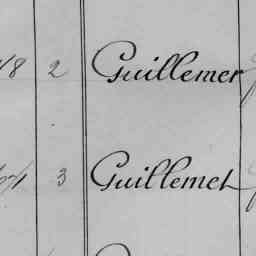 18 2 Guillemer
3 Guillemet